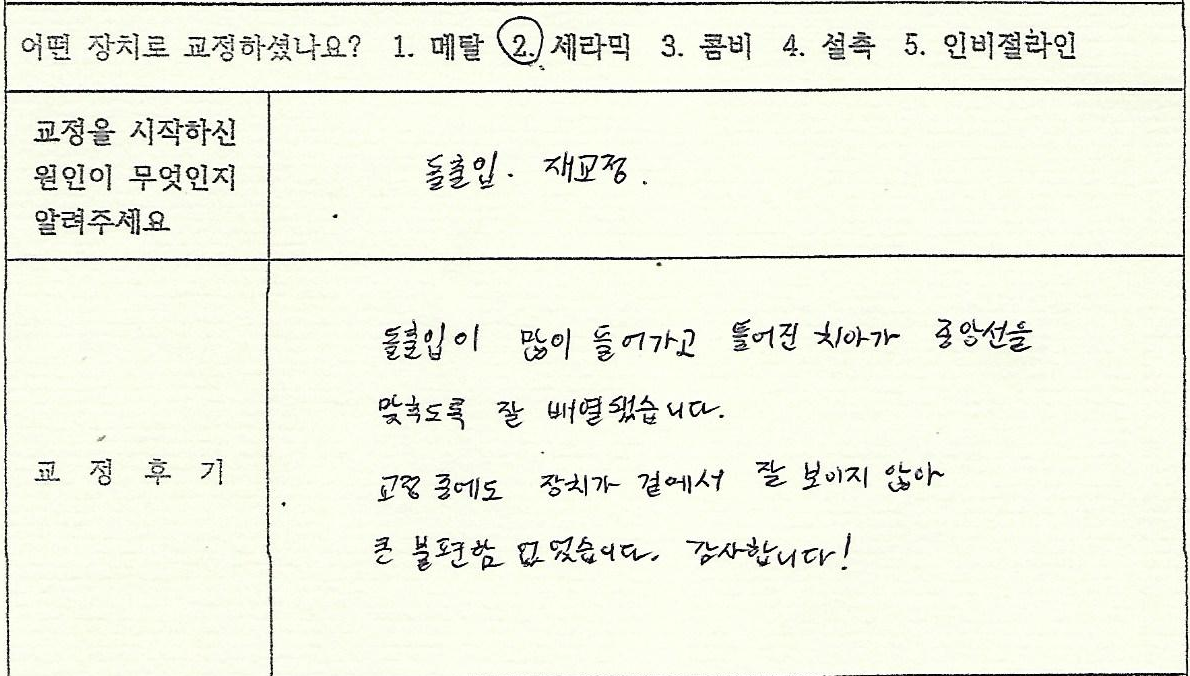 어떤 장치로 교정하셨나요? 1. 메탈 2. 세라믹 3. 콤비 4. 설측 5. 인비절라인
교정을 시작하신
원인이 무엇인지
알려주세요
돌출입. 재교정.
교 정 후 기
돌출입이 많이 들어가고 틀어진 치아가 중앙선을
맞추도록 잘 배열됐습니다.
교정 중에도 장치가 겉에서 잘 보이지 않아
큰 불편함 없었습니다. 감사합니다!